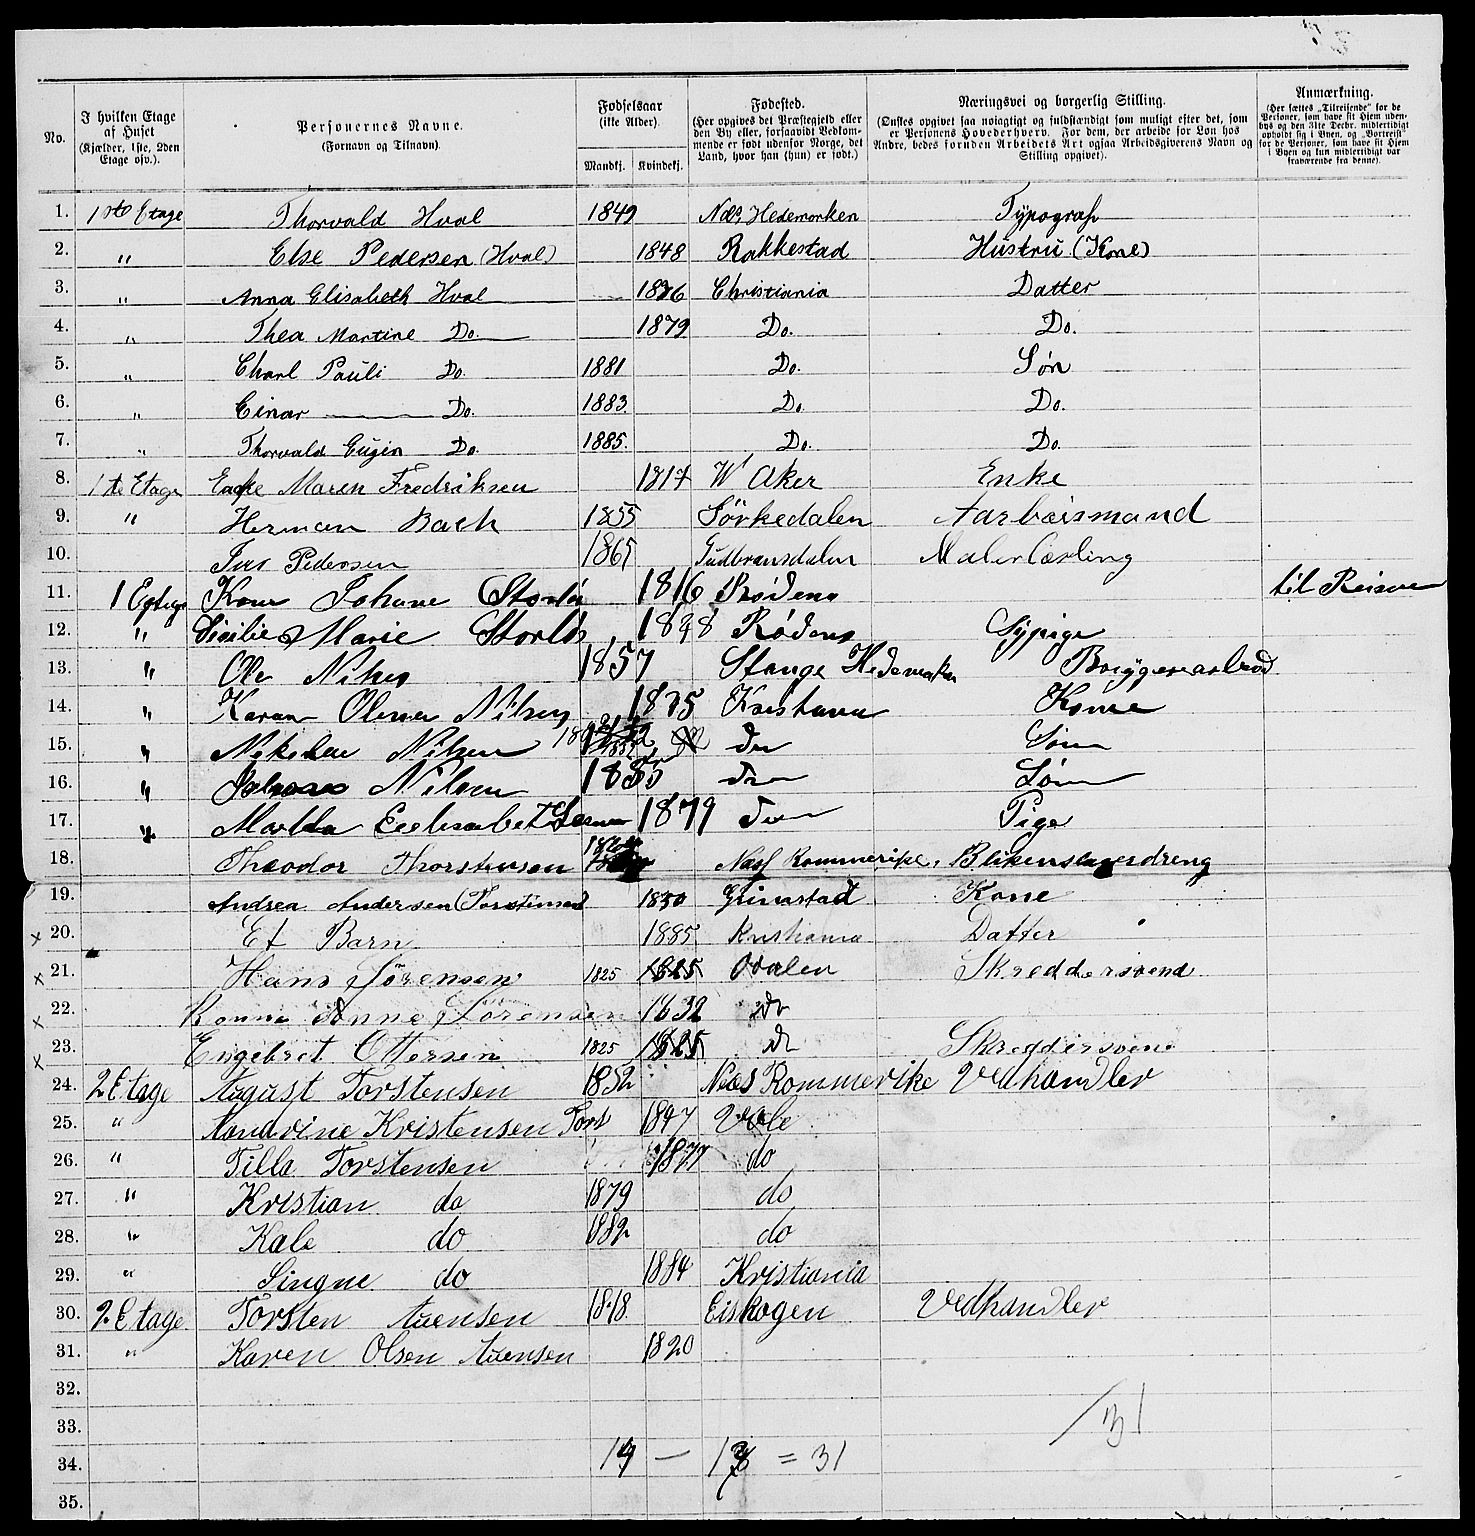 No.
I hvilken Etage af Huset (Kjælder, 1ste, 2den Etage osv.).
Personernes Navne. (Fornavn og Tilnavn).
Fødselsaar (ikke Alder). Mandkj. Kvindekj.
Fødested. (Her opgives det Præstegjeld eller den By eller, forsaavidt Vedkommende er født udenfor Norge, det Land, hvor han (hun) er født.)
Næringsvei og borgerlig Stilling. (Ønskes opgivet saa nøiagtigt og fuldstændigt som muligt efter det, som er Personens Hovederhverv. For dem, der arbeide for Løn hos Andre, bedes foruden Arbeidets Art ogsaa Arbeidsgiverens Navn og Stilling opgivet).
Anmærkning. (Her sættes „Tilreisende" for de Personer, som have sit Hjem udenbys og den 31te Decbr. midlertidigt opholdt sig i Byen, og „Bortreist" for de Personer, som have sit Hjem i Byen og kun midlertidigt var fraværende fra denne).
1. 1ste Etage Thorvald Hval 1849 Nds Hedemarken Typograf
2. " Else Pedersen (Hval) 1848 Rakkestad Hustru (Kone)
3. " Anna Elisabeth Hval 1876 Christiania Datter
4. " Thea Martine Do. 1879 Do. Do.
5. " Charl Pauli Do. 1881 Do. Søn
6. " Einar Do. 1883 Do. Do.
7. " Thorvald Eugin Do. 1885. Do. Do.
8. 1te Etage Enke Maren Fredriksen 1817 W Aker Enke
9. " Herman Bach 1855 Sörkedalen Aarbeismand
10. Pedersen 1865 Gudbransdalen Malerlærling
11. 1 Kone Johane 1816 Rødens til Reisene
12. " Marie 18 8 Rødens Sypige
13. " Ole 1857 Stange Hedemarken
14. " Karan Nilsen Kone
15. " Nilsen Søn
16. " Nilsen Søn
17. " 1879 Pige
18. Theodor Thorstensen Næss Rommerike,
19. Andrea Andersen (Torstensen) 1850 Grimstad Kone
20. Et Barn 1885 Kristiania Datter
21. Hans Sörensen 1825 1825 Odalen Skreddersvend
22. Konne Anne Sörensen 1832 Do
23. Engebret Ottersen 1825 1825 Do Skreddersvend
24. 2 Etage August Torstensen 1852 Næs Rommerike Vedhandler
25. " Kristensen Tors 1847 Vole
26. " Tilla Torstensen 1877 do
27. " Kristian do 1879 do
28. " Kale do 1882 do
29. " Singne do 1884 Kristiania
30. 2. Etage Torsten Auensen 1818. Eiskogen Vedhandler
31. " Karen Olsen Auensen 1820
32.
33. 31
34. 14 — 1 = 31
35.